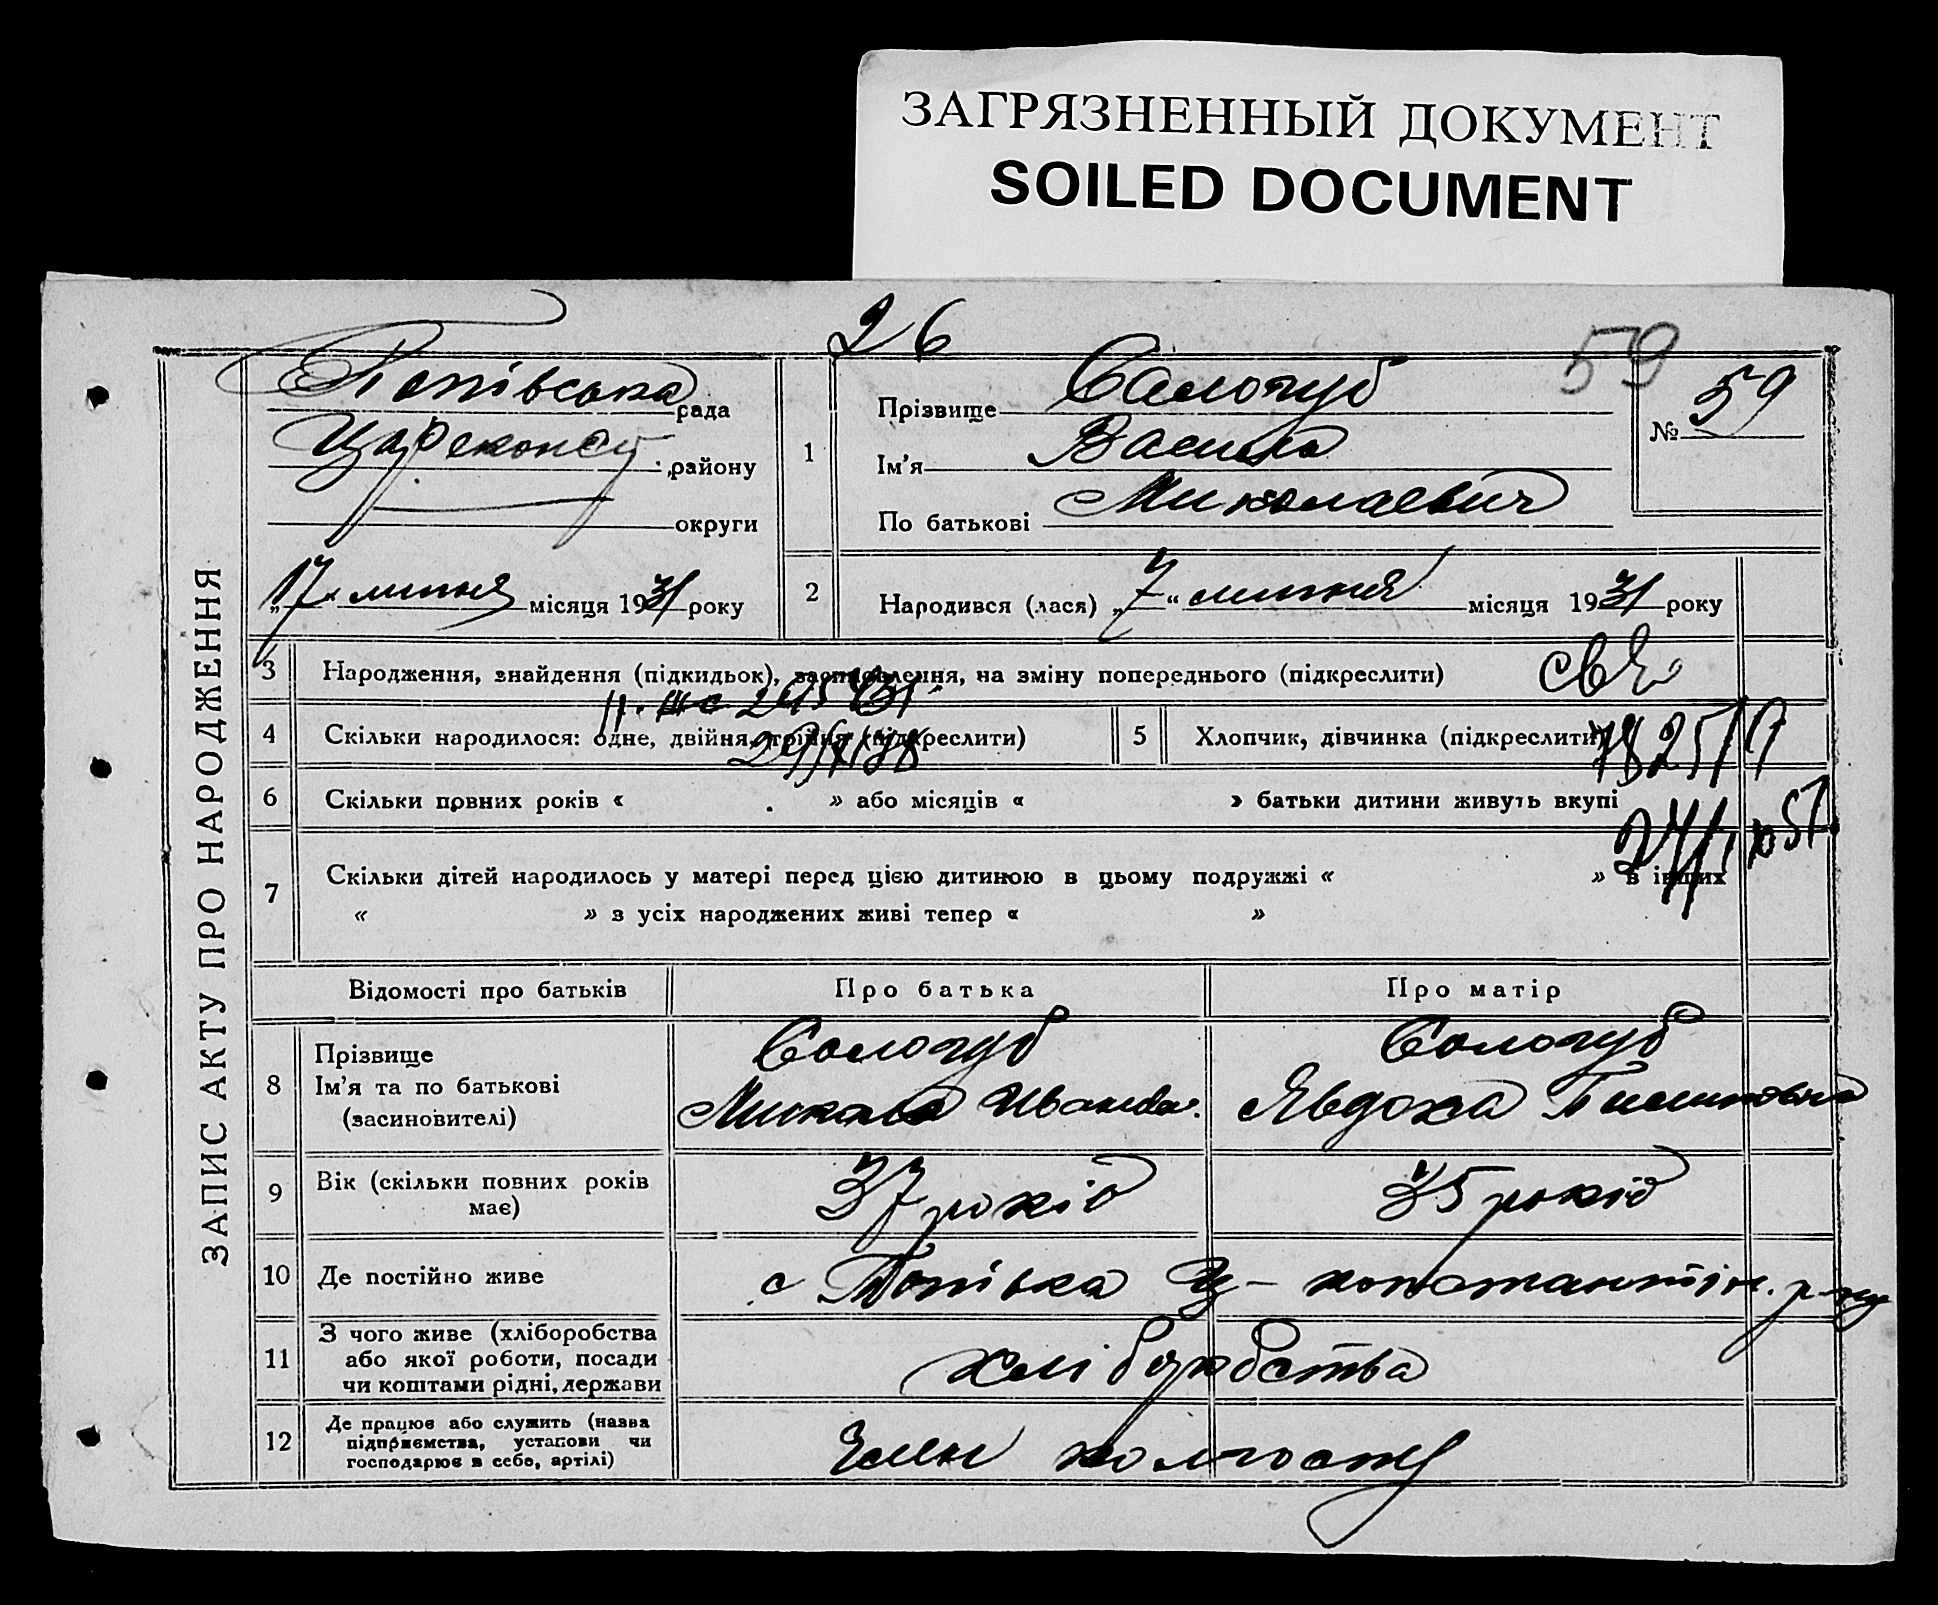 ЗАГРЯЗНЕННЫЙ ДОКУМЕНТ
SOILED DOCUMENT
26
59
ЗАПИС АКТУ ПРО НАРОДЖЕННЯ
Попівська рада
району
округи
„17“ липня місяця 1931 року
1
Прізвище Сологуб
Ім'я Василь
По батькові Миколаевич
№ 59
2 Народився (лася) „7“ липня місяця 1931 року
3 Народження, знайдення (підкидьок), засиновлення, на зміну попереднього (підкреслити)
4 Скільки народилося: одне, двійня, трійня (підкреслити) 5 Хлопчик, дівчинка (підкреслити)
6 Скільки повних років « » або місяців « » батьки дитини живуть вкупі
7 Скільки дітей народилось у матері перед цією дитиною в цьому подружжі « » в інших
« » з усіх народжених живі тепер « »
Відомості про батьків Про батька Про матір
8 Прізвище Сологуб Сологуб
Ім'я та по батькові Микола Явдоха
(засиновителі)
9 Вік (скільки повних років 37 років 35 років
має)
10 Де постійно живе с Попівка Ц-константін. р-ну
11 З чого живе (хліборобства
або якої роботи, посади хліборобства
чи коштами рідні, держави
12 Де працює або служить (назва
підприємства, установи чи Член колгоспу
господарює в себе, артілі)